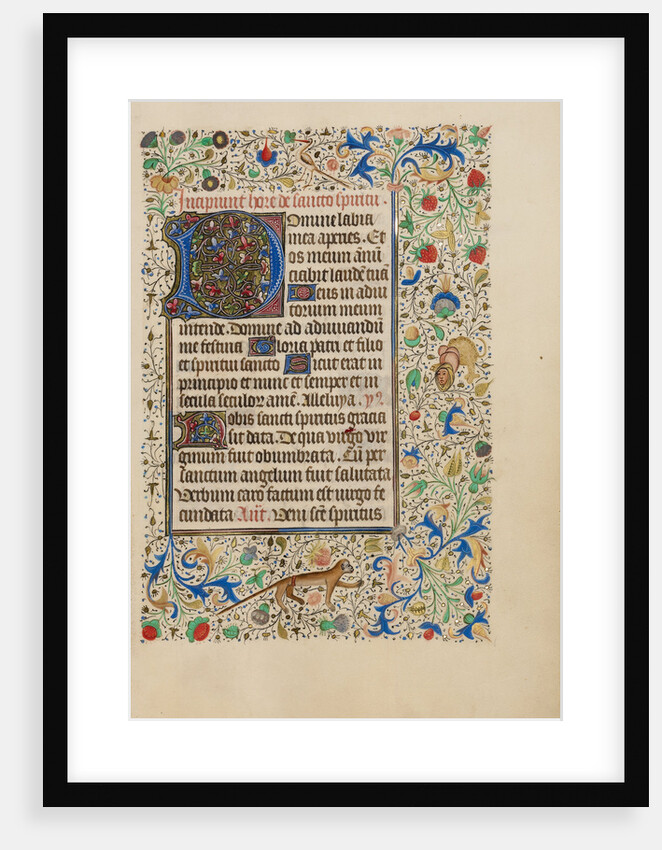 Incipiunt hore de sancto spiritu.
Domine labia
mea aperies. Et
os meum anñũ
ciabit laudẽ tuã
Deus in adiu
torium meum
intende. Domine ad adiuuandũ
me festina Gloria patri et filio
et spiritui sancto Sicut erat in
principio et nunc et semper et in
secula seculor amẽ. Alleluya. ẏ9.
Nobis sancti spiritus gracia
sit data. De qua virgo vir
ginum fuit obumbrata. Cũ per
sanctum angelum fuit salutata
Verbum caro factum est virgo fe
cundata Añt. Veni scẽ spiritus